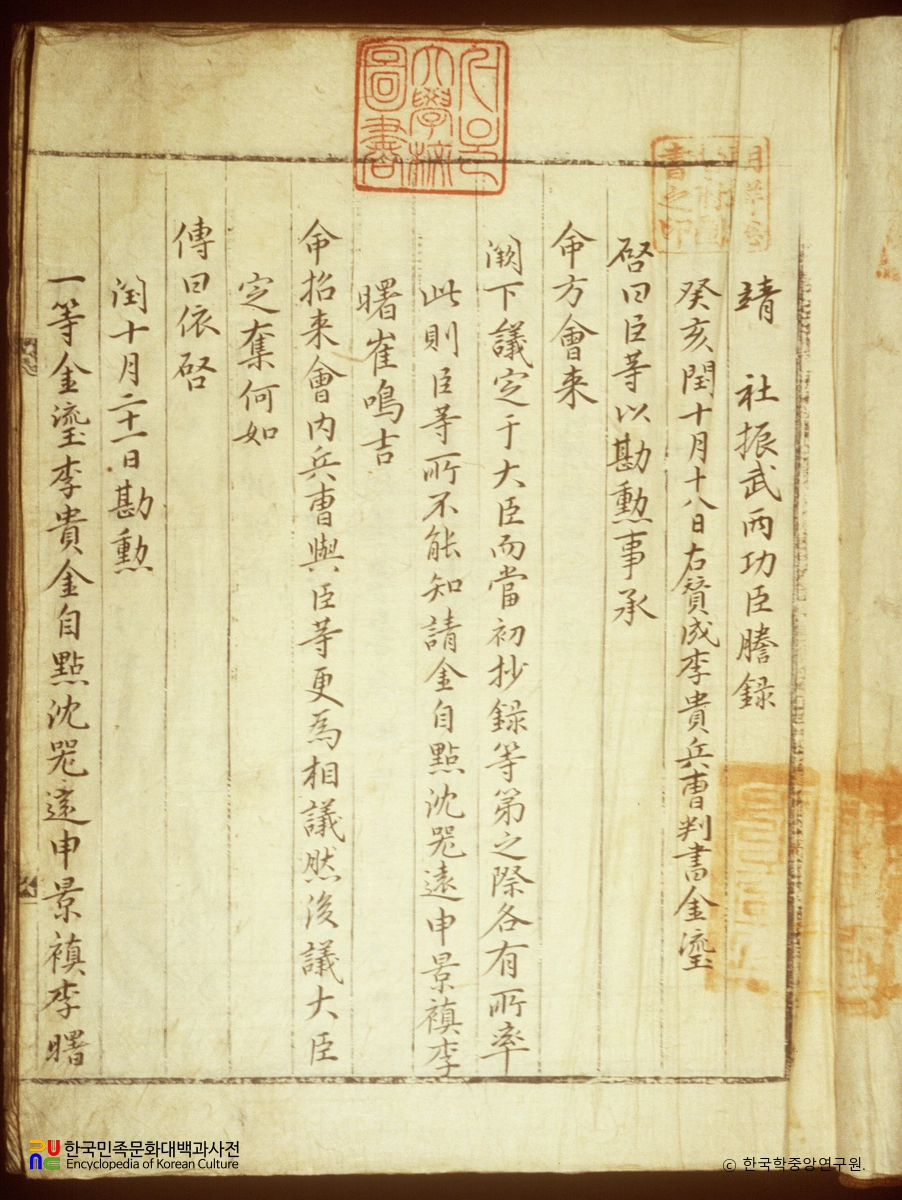 靖 社振武两功臣謄録
癸亥閏十月十八日右賛成李貴兵曺判書金瑬
啓曰臣等以勘勲事承
命方會来
闕下議定于大臣而當初抄録等第之際各有所率
此則臣等所不能知請金自點沈器遠申景禛李
曙崔鳴吉
命招来會内兵曺與臣等更為相議然後議大臣
定奪何如
傳曰依啓
閏十月二十一日勘勲
一等金瑬李貴金自點沈器遠申景禛李曙
大學校
圖書
한국민족문화대백과사전
Encyclopedia of Korean Culture
© 한국학중앙연구원.